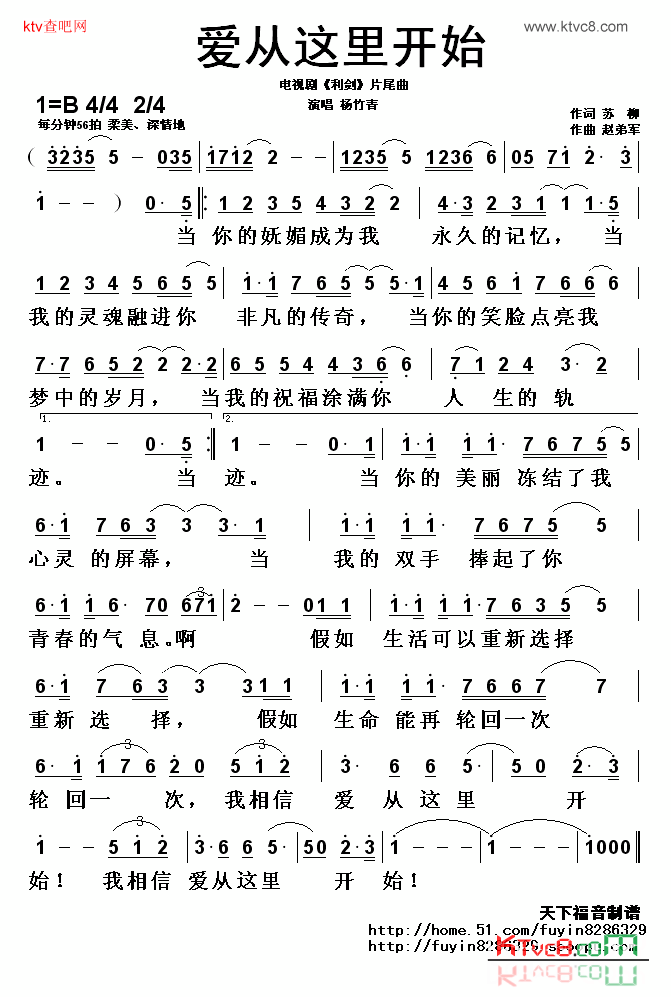 ktv查吧网
www.ktvc8.com
爱从这里开始
电视剧《利剑》片尾曲
1=B 4/4 2/4
演唱 杨竹青
作词 苏 柳
每分钟56拍 柔美、深情地
作曲 赵弟军
( 3235 5 - 035 | 1712 2 - | 1235 5 12166 | 05 71 2· 3
1 - - ) 0· 5 |: 1 2 3 5 4 3 2 2 | 4·3 4 2 3 1 1 1·5
当 你的妩媚成为我 永久的记忆， 当
1 2 3 4 5 6 5 5 | 3·1 1 7 6 5 5 5·1 | 4 5 6 1 7 6 6 6
我的灵魂融进你 非凡的传奇， 当你的笑脸点亮我
7·7 6 5 2 2 2·2 | 6 5 5 4 3 6 6 | 7 1 2 4 3· 2
梦中的岁月， 当我的祝福涂满你 人 生的 轨
1. 2.
1 - - 0· 5 :| 1 - - 0·1 | 1·1 1·1 7675 5
迹。 当 迹。 当 你的 美丽 冻结了我
6·1 7 6 3 3 3·1 | 1·1 1·1 7675 5
心灵 的屏幕， 当 我的 双手 捧起了你
3
6·1 1 6· 70 671 | 2 - - 011 | 1·1 1·1 7635 5
青春的气 息。啊 假如 生活可以重新选择
6·1 7 63 3 311 | 1·1 1·1 7667 7
重新 选 择， 假如 生命 能再 轮回一次
6· 1 176 20 512 | 3· 6 6 5· | 50 2· 3
轮 回一 次， 我相信 爱 从 这 里 开
1 - - 512 | 3·6 6 5· | 50 2·3 | 1 - - - | 1000 ||
始！ 我相信 爱从这里 开 始！
天下福音制谱
http://home.51.com/fuyin8286329
KTvc8.com